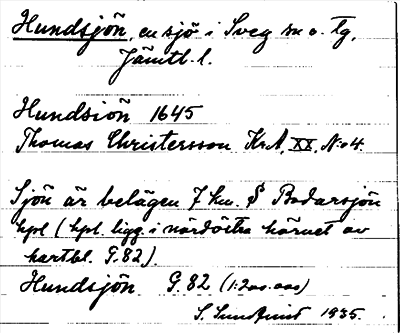 Hundsjön, en sjö i Sveg sn o. tg,
Jämtl. l.
Hundsiön 1645
Thomas Christersson KrA, XX, N:o 4.
Sjön är belägen 7 km. S Rodarsjön
hpl (hpl. ligg. i nordöstra hörnet av
kartbl. G.82).
Hundsjön G.82 (1:200.000)
S. Sundqvist 1935.